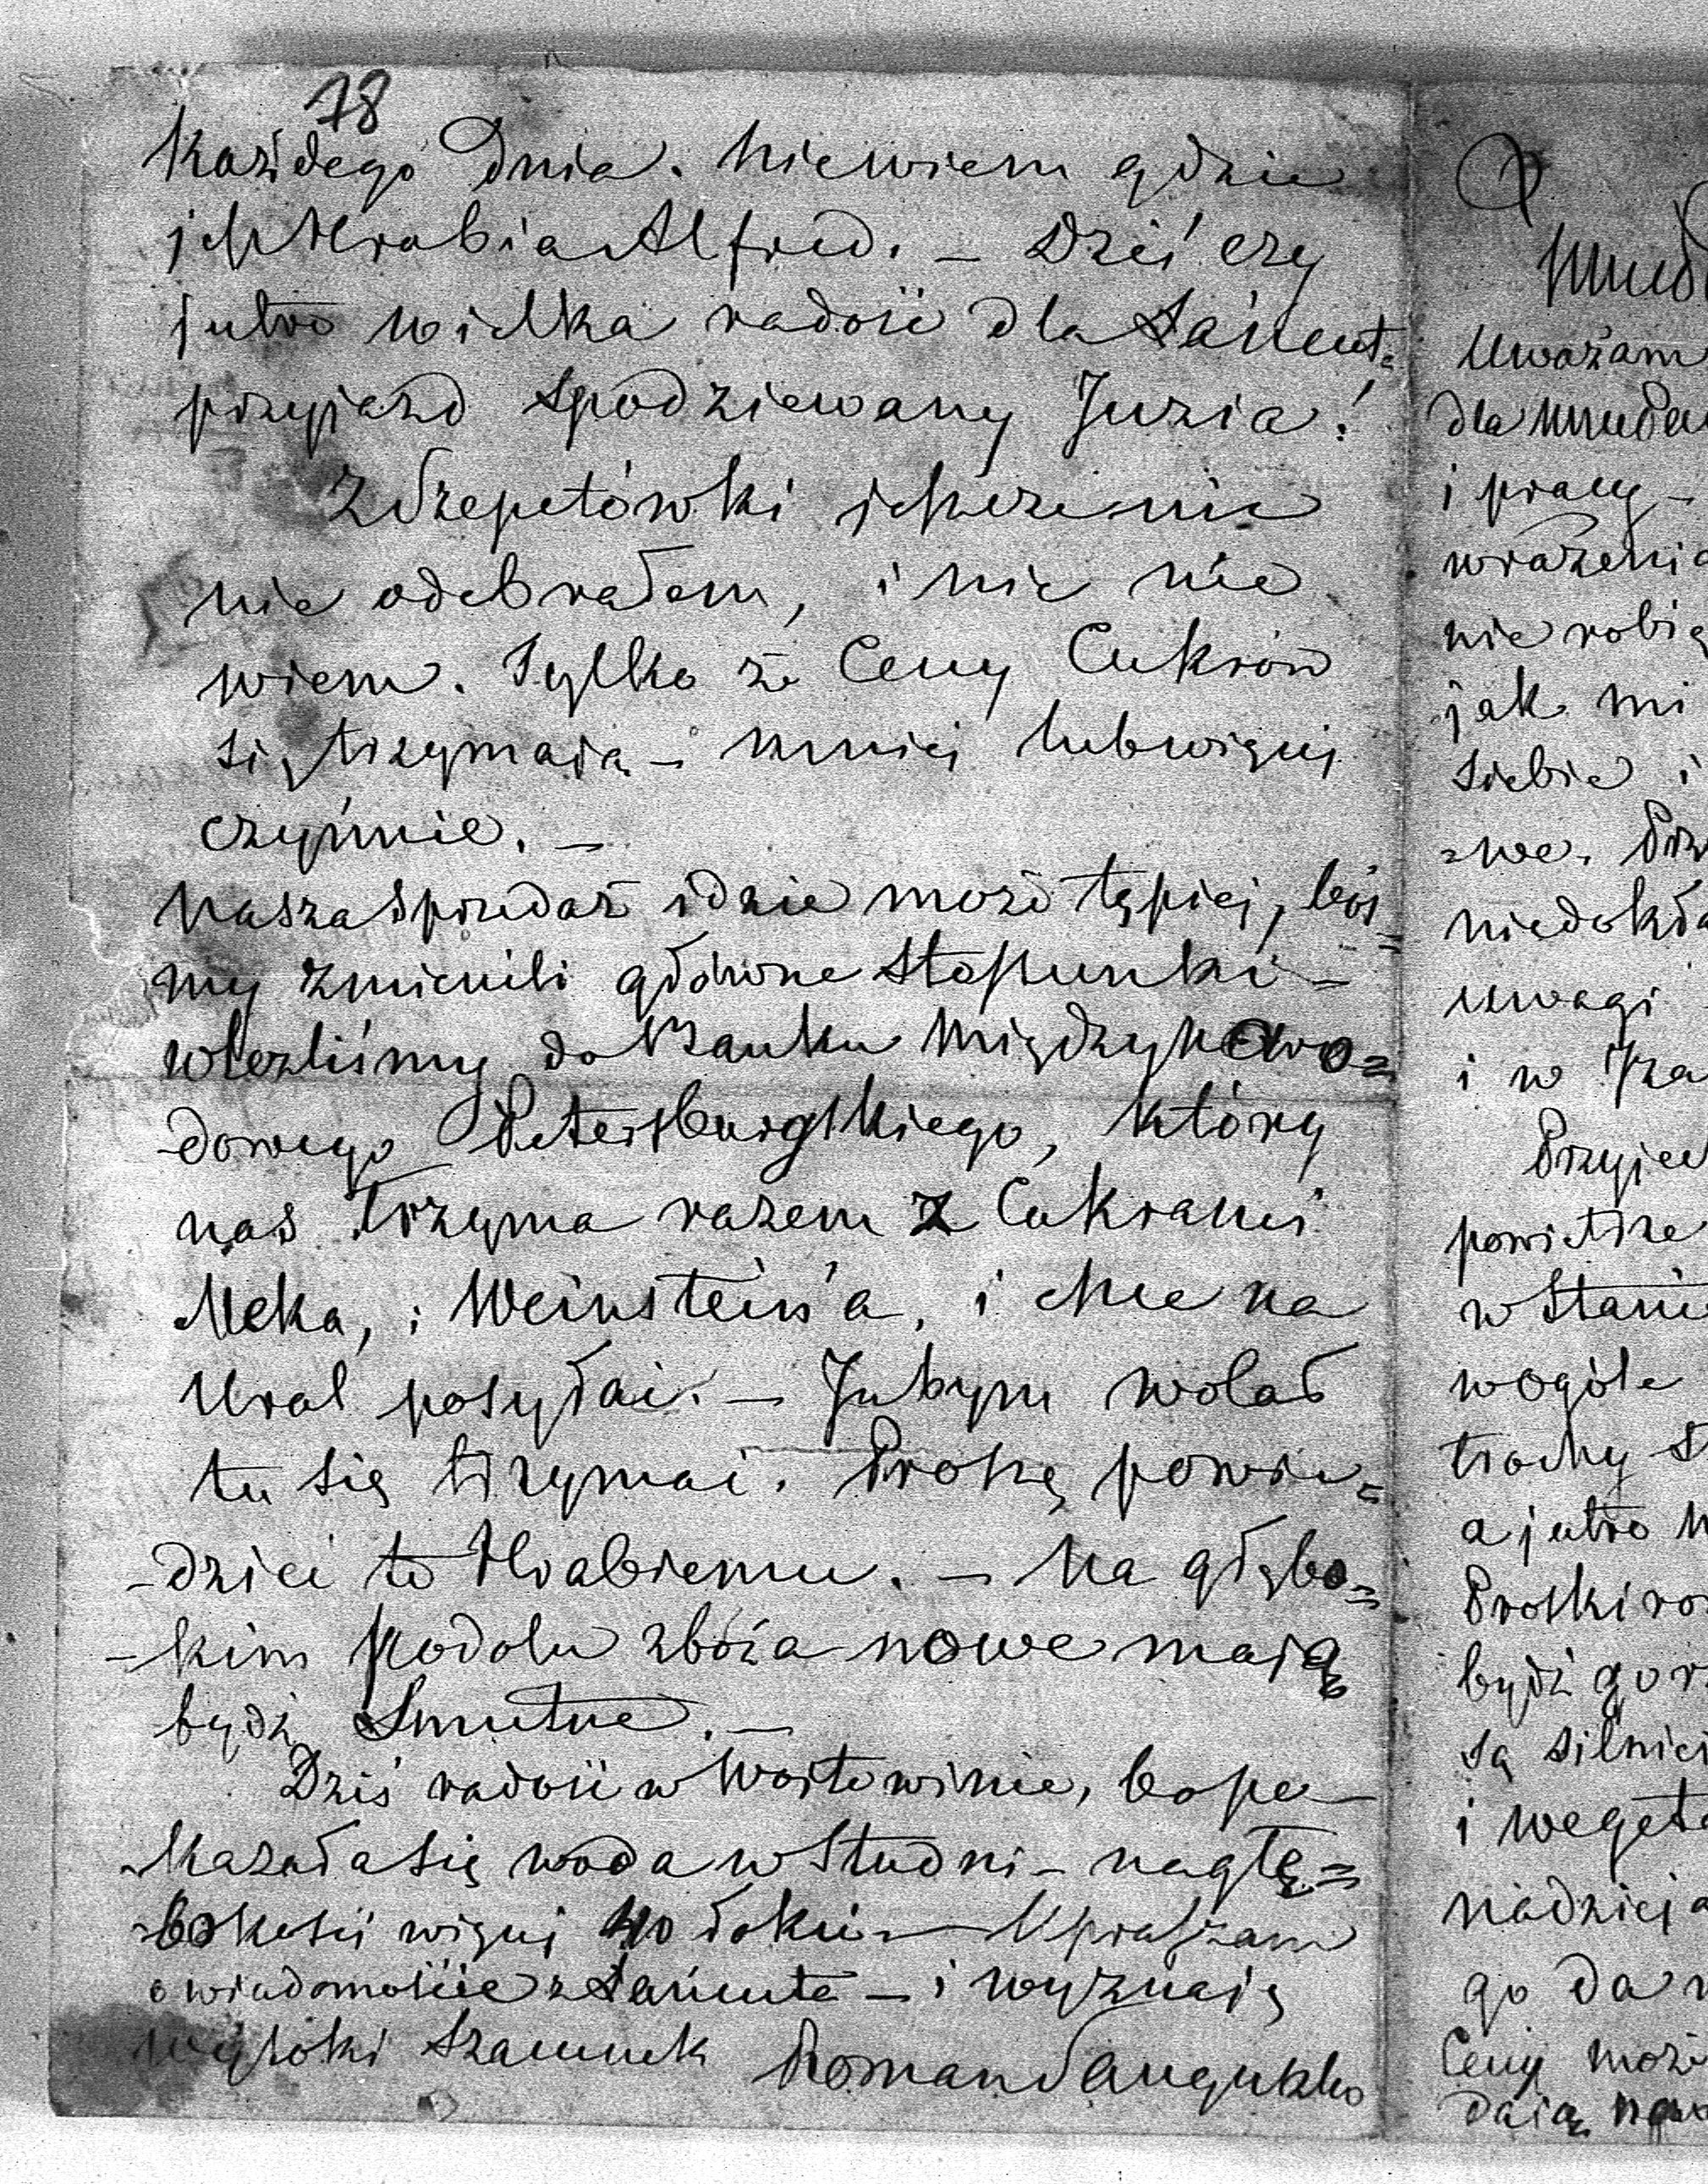 78
każdego dnia. Niewiem gdzie
jest Hrabia Alfred. – Dziś czy
jutro wielka radość dla Łańcut.
przyjazd spodziewany Juzia!
Z Szepetówki jeszcze nic
nie odebrałem, i nic nie
wiem. Tylko że Ceny Cukrów
się trzymają – mniej lub więcej
czynnie. –
Nasza Sprzedaż idzie może tępiej, bós=
my zmienili główne Stosunki –
wleźliśmy do Banku Międzynaro=
dowego Petersburgskiego, który
nas trzyma razem z Cukrami
Meka, i Weinstein'a, i chce na
Ural posyłać. – Jabym wolał
tu się trzymać. Proszę powie=
-dzieć to Hrabiemu. – Na głębo=
-kim Podolu zboża nowe mają
bydź Smutne. –
Dziś radość w Wojtowinie, bo po–
kazała się woda w Studni – na głę=
bokości więcej 40 łokci – Upraszam
o wiadomoście z Łańcuta – i wyznaję
wysoki szacunek Roman Sanguszko
Uważam
i pracy –
wrażenia
nie robią
jak mi
siebie i
=we.
uwagi
i w
powietrze
wogóle
trochę
a jutro
bydź
są silniej
i
go da
Ceny może
dają